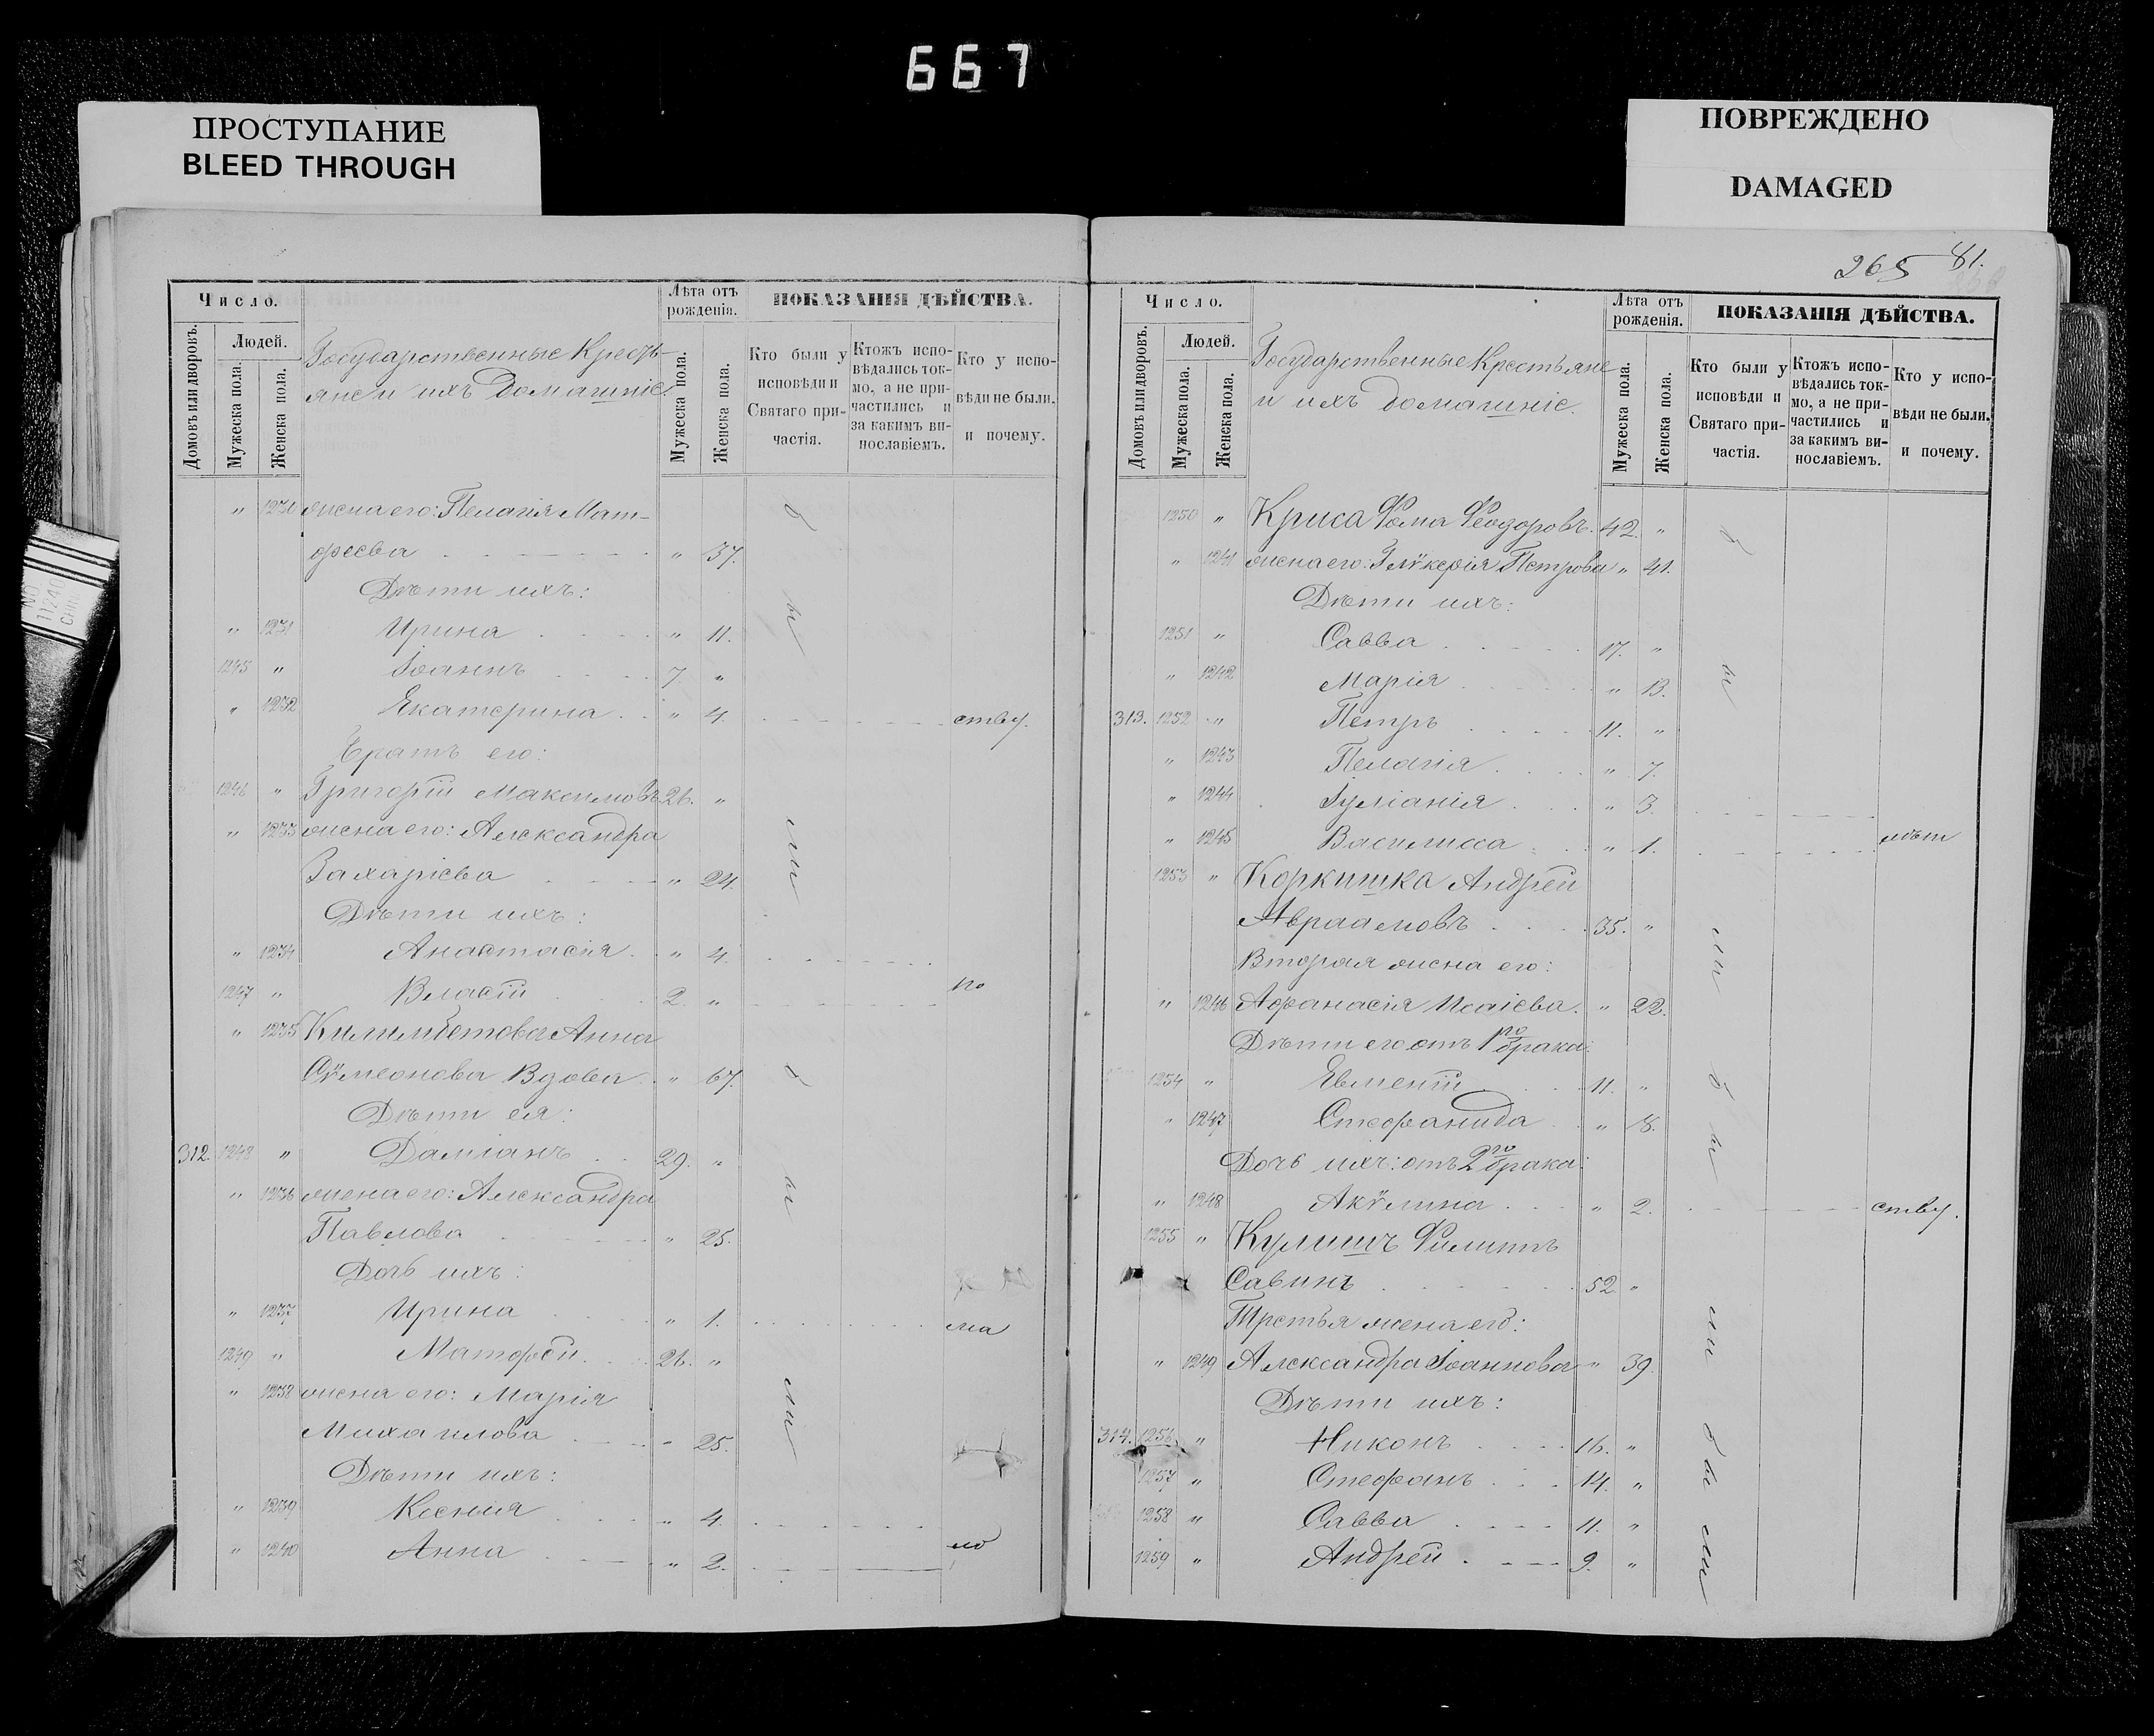 667
ПРОСТУПАНИЕ
BLEED THROUGH
ПОВРЕЖДЕНО
DAMAGED
Число.
Домовъ или дворовъ.
Людей.
Мужеска пола.
Женска пола.
Государственные Кресть-
яне и ихъ домашніе.
Лѣта отъ рожденія.
Мужеска пола.
Женска пола.
ПОКАЗАНІЯ ДѢЙСТВА.
Кто были у исповѣди и Святаго причастія.
Ктожъ исповѣдались токмо, а не причастились и за какимъ винославіемъ.
Кто у исповѣди не были, и почему.
" 1230 жена его: Пелагія Мат-
ѳеева " 37.
Дѣти ихъ:
" 1231 Ирина " 11.
1245 " Іоаннъ 7 "
" 1232 Екатерина " 4. ству.
Братъ его:
1246 " Григорій Максимовъ 26. "
" 1233 жена его: Александра
Захаріева " 24.
Дѣти ихъ:
" 1234 Анастасія " 4.
1247 " Власій 2. " по
" 1235 Килимбетова Анна
Сѵмеонова Вдова " 67.
Дѣти ея:
312. 1248 " Даміанъ 29. "
" 1236 жена его: Александра
Павлова " 25.
Дочь ихъ:
" 1237 Ирина " 1. ма
1249 " Матѳей 26. "
" 1238 жена его: Марія
Михаилова " 25.
Дѣти ихъ:
" 1239 Ксенія " 4.
" 1240 Анна " 2. ло
бы ли
бы ли
265 81.
Число.
Домовъ или дворовъ.
Людей.
Мужеска пола.
Женска пола.
Государственные Крестьяне
и ихъ домашніе.
Лѣта отъ рожденія.
Мужеска пола.
Женска пола.
ПОКАЗАНІЯ ДѢЙСТВА.
Кто были у исповѣди и Святаго причастія.
Ктожъ исповѣдались токмо, а не причастились и за какимъ винославіемъ.
Кто у исповѣди не были, и почему.
1250 " Криса Ѳома Ѳеодоровъ. 42. "
" 1241 жена его: Глѵкерія Петрова " 41.
Дѣти ихъ:
1251 " Савва 17. "
" 1242 Марія " 13.
313. 1252 " Петръ 11. "
" 1243 Пелагія " 7.
" 1244 Іуліанія " 3.
" 1245 Василисса " 1. лѣт
1253 " Коркишка Андрей
Авраамовъ 35. "
Вторая жена его:
" 1246 Аѳанасія Исаіева. " 22.
Дѣти его отъ 1го брака:
1254 " Евменій 11. "
" 1247 Стефанида " 8.
Дочь ихъ: отъ 2го брака:
" 1248 Акѵлина " 2. ству.
1255 " Кулишъ Филиппъ
Савинъ 52 "
Третья жена его:
" 1249 Александра Іоаннова " 39.
Дѣти ихъ:
314. 1256 " Никонъ 16. "
1257 " Стефанъ 14. "
1258 " Савва 11. "
1259 " Андрей 9. "
бы ли
бы ли
бы ли